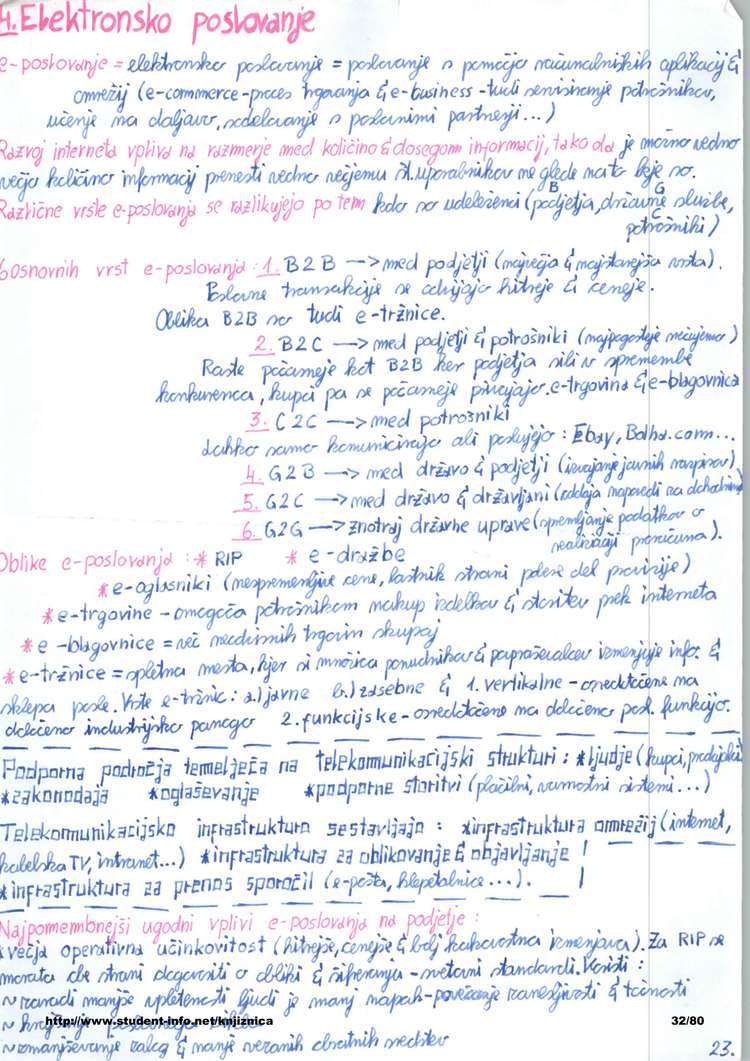 4. Elektronsko poslovanje
e-poslovanje = elektronsko poslovanje = poslovanje s pomočjo računalniških aplikacij &
omrežij (e-commerce-proces trgovanja & e-business-tudi servisiranje potrošnikov,
učenje na daljavo, sodelovanje s poslovnimi partnerji...)
Razvoj interneta vpliva na razmerje med količino & dosegom informacij, tako da je možno vedno
večjo količino informacij prenesti vedno večjemu št. uporabnikov ne glede na to kje so.
Različne vrste e-poslovanja se razlikujejo po tem kdo so udeleženci (podjetja, državne službe,
B G C
potrošniki)
6 osnovnih vrst e-poslovanja: 1. B2B —> med podjetji (največja & najstarejša vrsta).
Poslovne transakcije se odvijajo hitreje & ceneje.
Oblika B2B so tudi e-tržnice.
2. B2C —> med podjetji & potrošniki (najpogosteje srečujemo)
Raste počasneje kot B2B ker podjetja sili v spremembe
konkurenca, kupci pa se počasneje privajajo. e-trgovina & e-blagovnica
3. C2C —> med potrošniki
Lahko samo komunicirajo ali poslujejo: Ebay, Bolha.com...
4. G2B —> med državo & podjetji (izvajanje javnih razpisov)
5. G2C —> med državo & državljani (oddaja napovedi za dohodnino)
6. G2G —> znotraj državne uprave (spremljanje podatkov o
realizaciji proračuna).
Oblike e-poslovanja: * RIP * e-dražbe
* e-oglasniki (nespremenljive cene, lastnik strani pobere del provizije)
* e-trgovine - omogoča potrošnikom nakup izdelkov & storitev prek interneta
* e-blagovnice = več neodvisnih trgovin skupaj
* e-tržnice = spletna mesta, kjer si množica ponudnikov & povpraševalcev izmenjuje info. &
sklepa posle. Vrste e-tržnic: a.) javne b.) zasebne & 1. vertikalne - osredotočene na
določeno industrijsko panogo 2. funkcijske - osredotočene na določeno posl. funkcijo.
Podporna področja temelječa na telekomunikacijski strukturi: * ljudje (kupci, prodajalci)
* zakonodaja * oglaševanje * podporne storitvi (plačilni, varnostni sistemi...)
Telekomunikacijsko infrastrukturo sestavljajo: * infrastruktura omrežij (internet,
kabelska TV, intranet...) * infrastruktura za oblikovanje & objavljanje
* infrastruktura za prenos sporočil (e-pošta, klepetalnice...).
Najpomembnejši ugodni vplivi e-poslovanja na podjetje:
* večja operativna učinkovitost (hitrejše, cenejše & bolj kakovostna izmenjava). Za RIP se
morata obe strani dogovoriti o obliki & šifriranju - svetovni standardi. Koristi:
~ zaradi manjše vpletenosti ljudi je manj napak - povečanje zanesljivosti & točnosti
~
http://www.student-info.net/knjiznica 32/80
~ zmanjševanje zalog & manje vezanih obratnih sredstev
23.